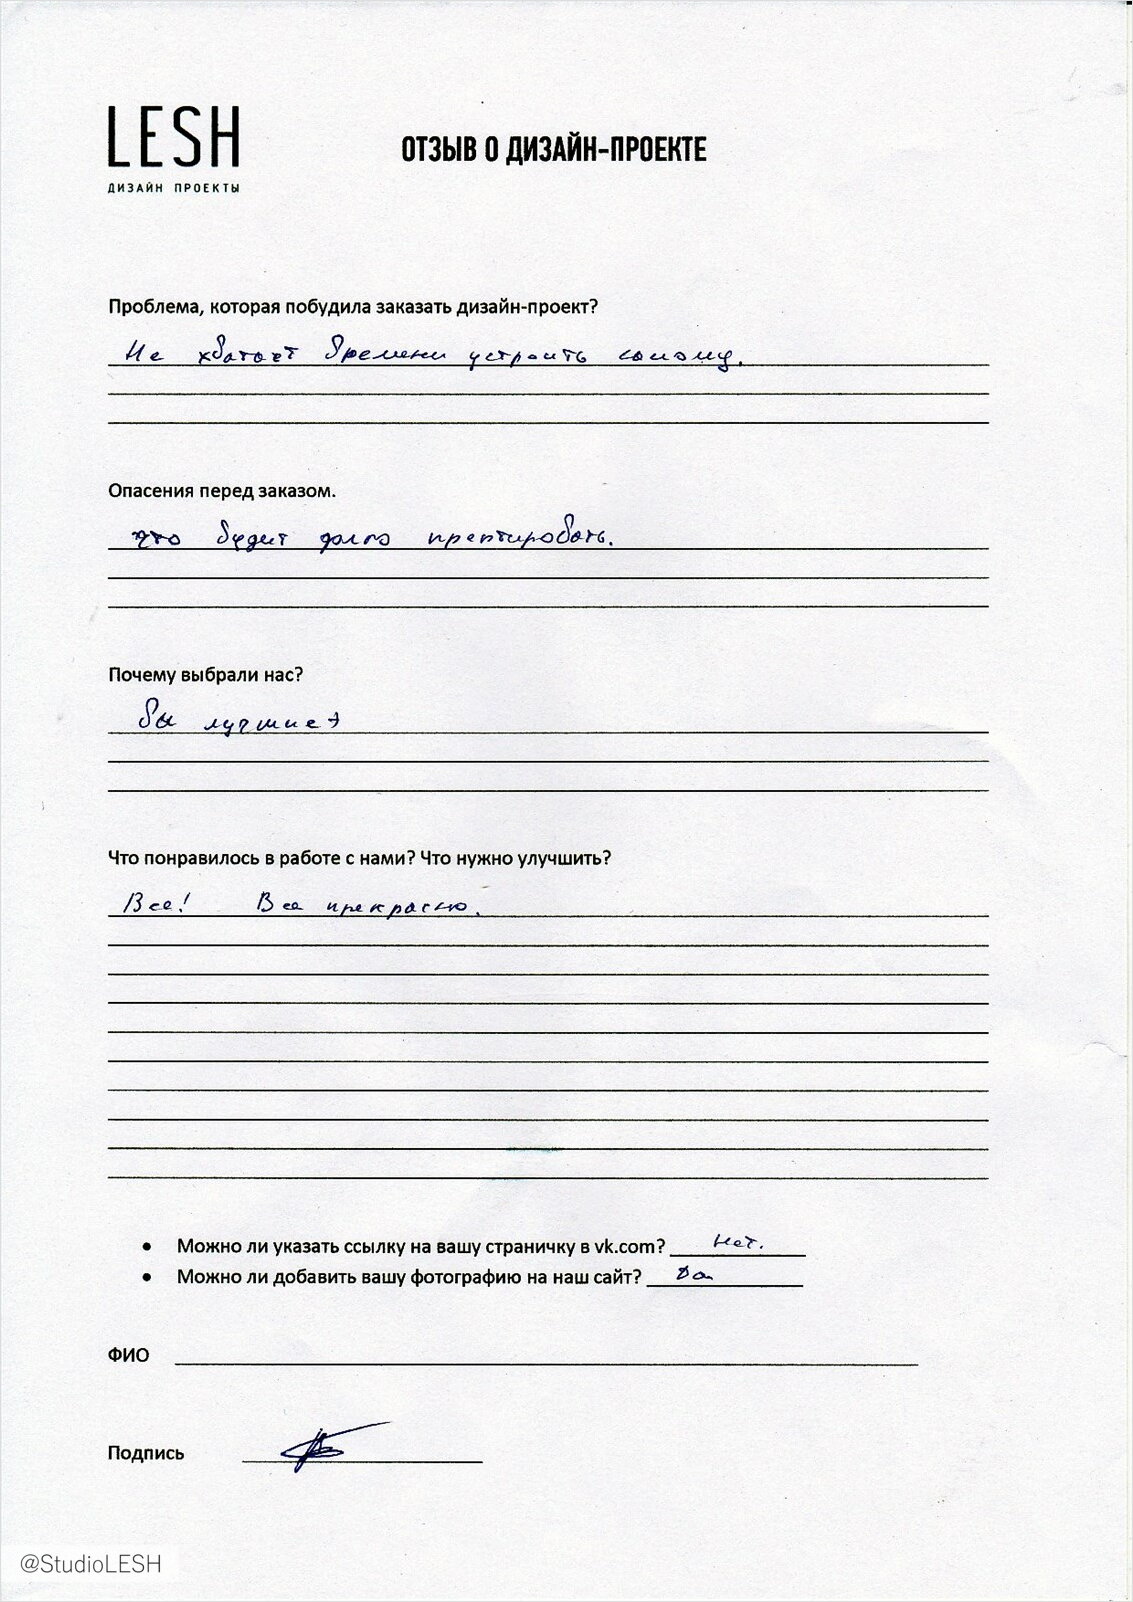 LESH
ДИЗАЙН ПРОЕКТЫ
ОТЗЫВ О ДИЗАЙН-ПРОЕКТЕ
Проблема, которая побудила заказать дизайн-проект?
Не хватает времени устроить самому.
Опасения перед заказом.
что будет долго
Почему выбрали нас?
Вы лучшие
Что понравилось в работе с нами? Что нужно улучшить?
Все! Все прекрасно.
Можно ли указать ссылку на вашу страничку в vk.com? Нет.
Можно ли добавить вашу фотографию на наш сайт? Да
ФИО
Подпись
@StudioLESH